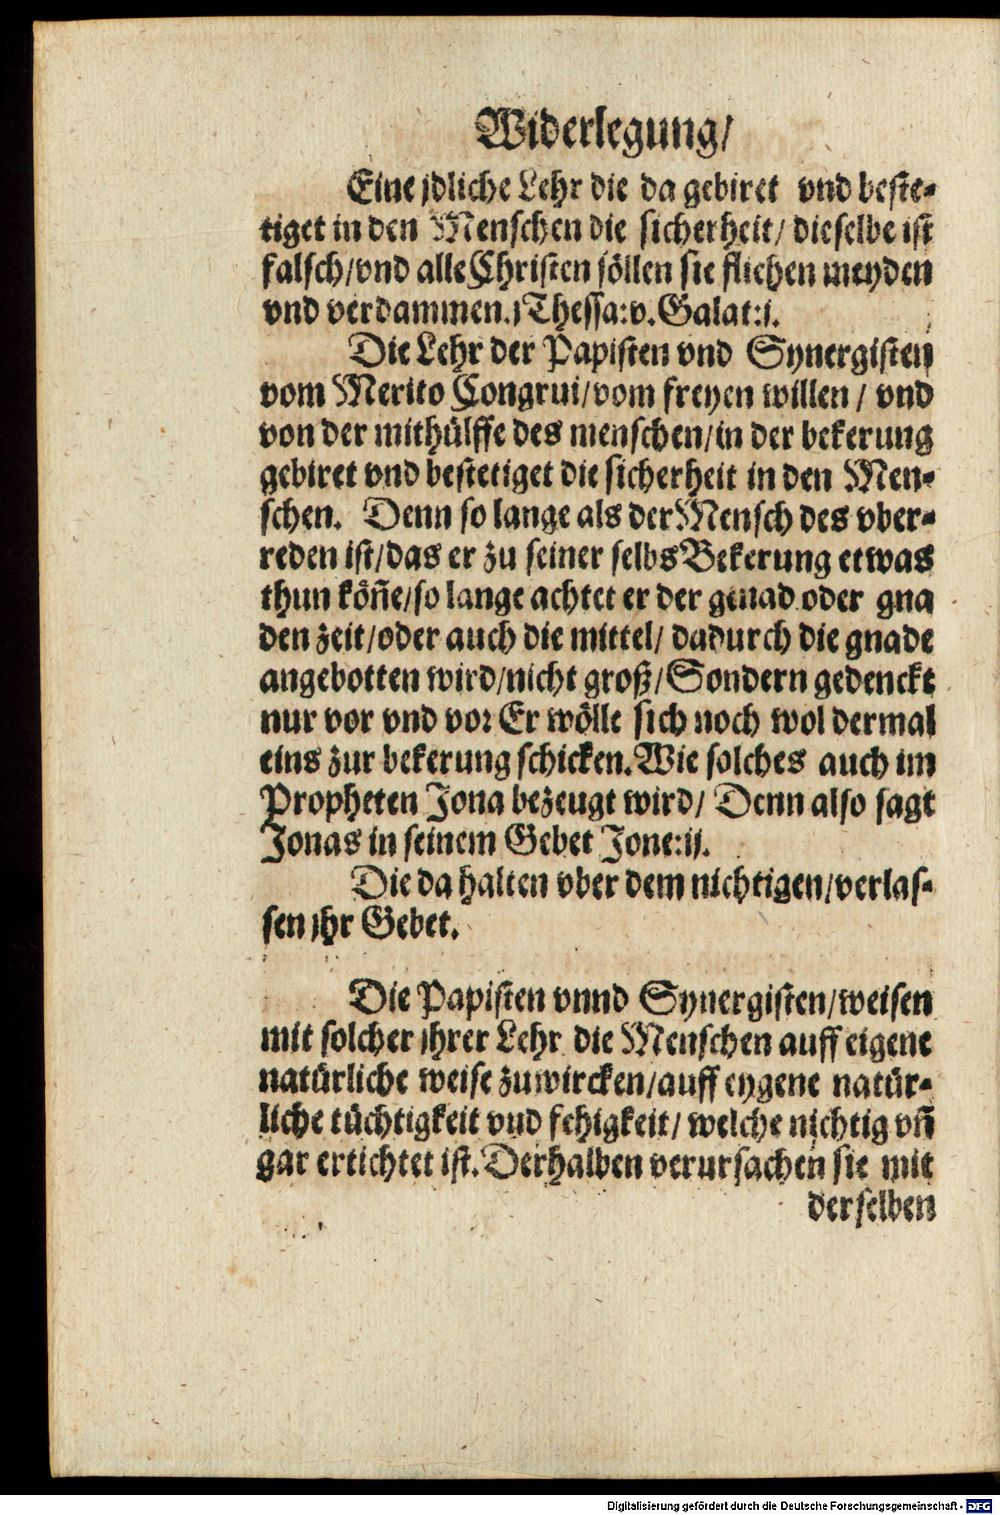 Widerlegung/
Eine jdliche Lehr die da gebiret vnd beste-
tiget in den Menschen die sicherheit/ dieselbe ist
falsch/vnd alle Christen söllen sie fliehen meyden
vnd verdammen.j Thessa:v. Galat:j.
Die Lehr der Papisten vnd Synergisten
vom Merito Congrui/vom freyen willen / vnd
von der mithülffe des menschen/in der bekerung
gebiret vnd bestetiget die sicherheit in den Men-
schen. Denn so lange als der Mensch des vber-
reden ist/das er zu seiner selbs Bekerung etwas
thun köñe/so lange achtet er der genad oder gna
den zeit/oder auch die mittel/ dadurch die gnade
angebotten wird/nicht groß/Sondern gedenckt
nur vor vnd vor Er wölle sich noch wol dermal
eins zur bekerung schicken. Wie solches auch im
Propheten Jona bezeugt wird/ Denn also sagt
Jonas in seinem Gebet Jone:ij.
Die da halten vber dem nichtigen/verlas-
sen jhr Gebet.
Die Papisten vnnd Synergisten/weisen
mit solcher jhrer Lehr die Menschen auff eigene
natürliche weise zuwircken/auff eygene natür-
liche tüchtigkeit vnd fehigkeit/ welche nichtig vñ
gar ertichtet ist. Derhalben verursachen sie mit
derselben
Digitalisierung gefördert durch die Deutsche Forschungsgemeinschaft - DFG